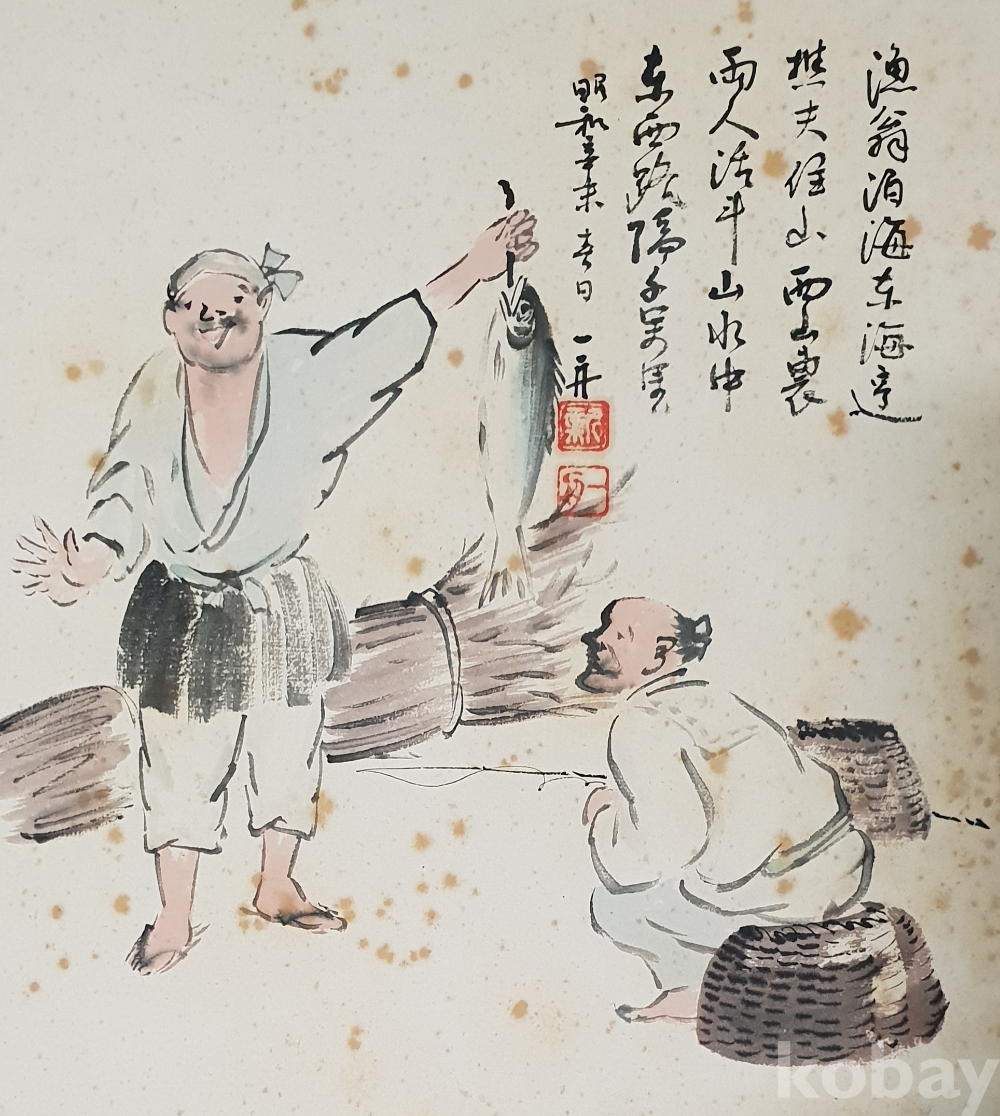 漁翁泊海东海邊
樵夫住山西山裏
兩人活计山水中
东西路隔千万里
昭和辛未 春日 一